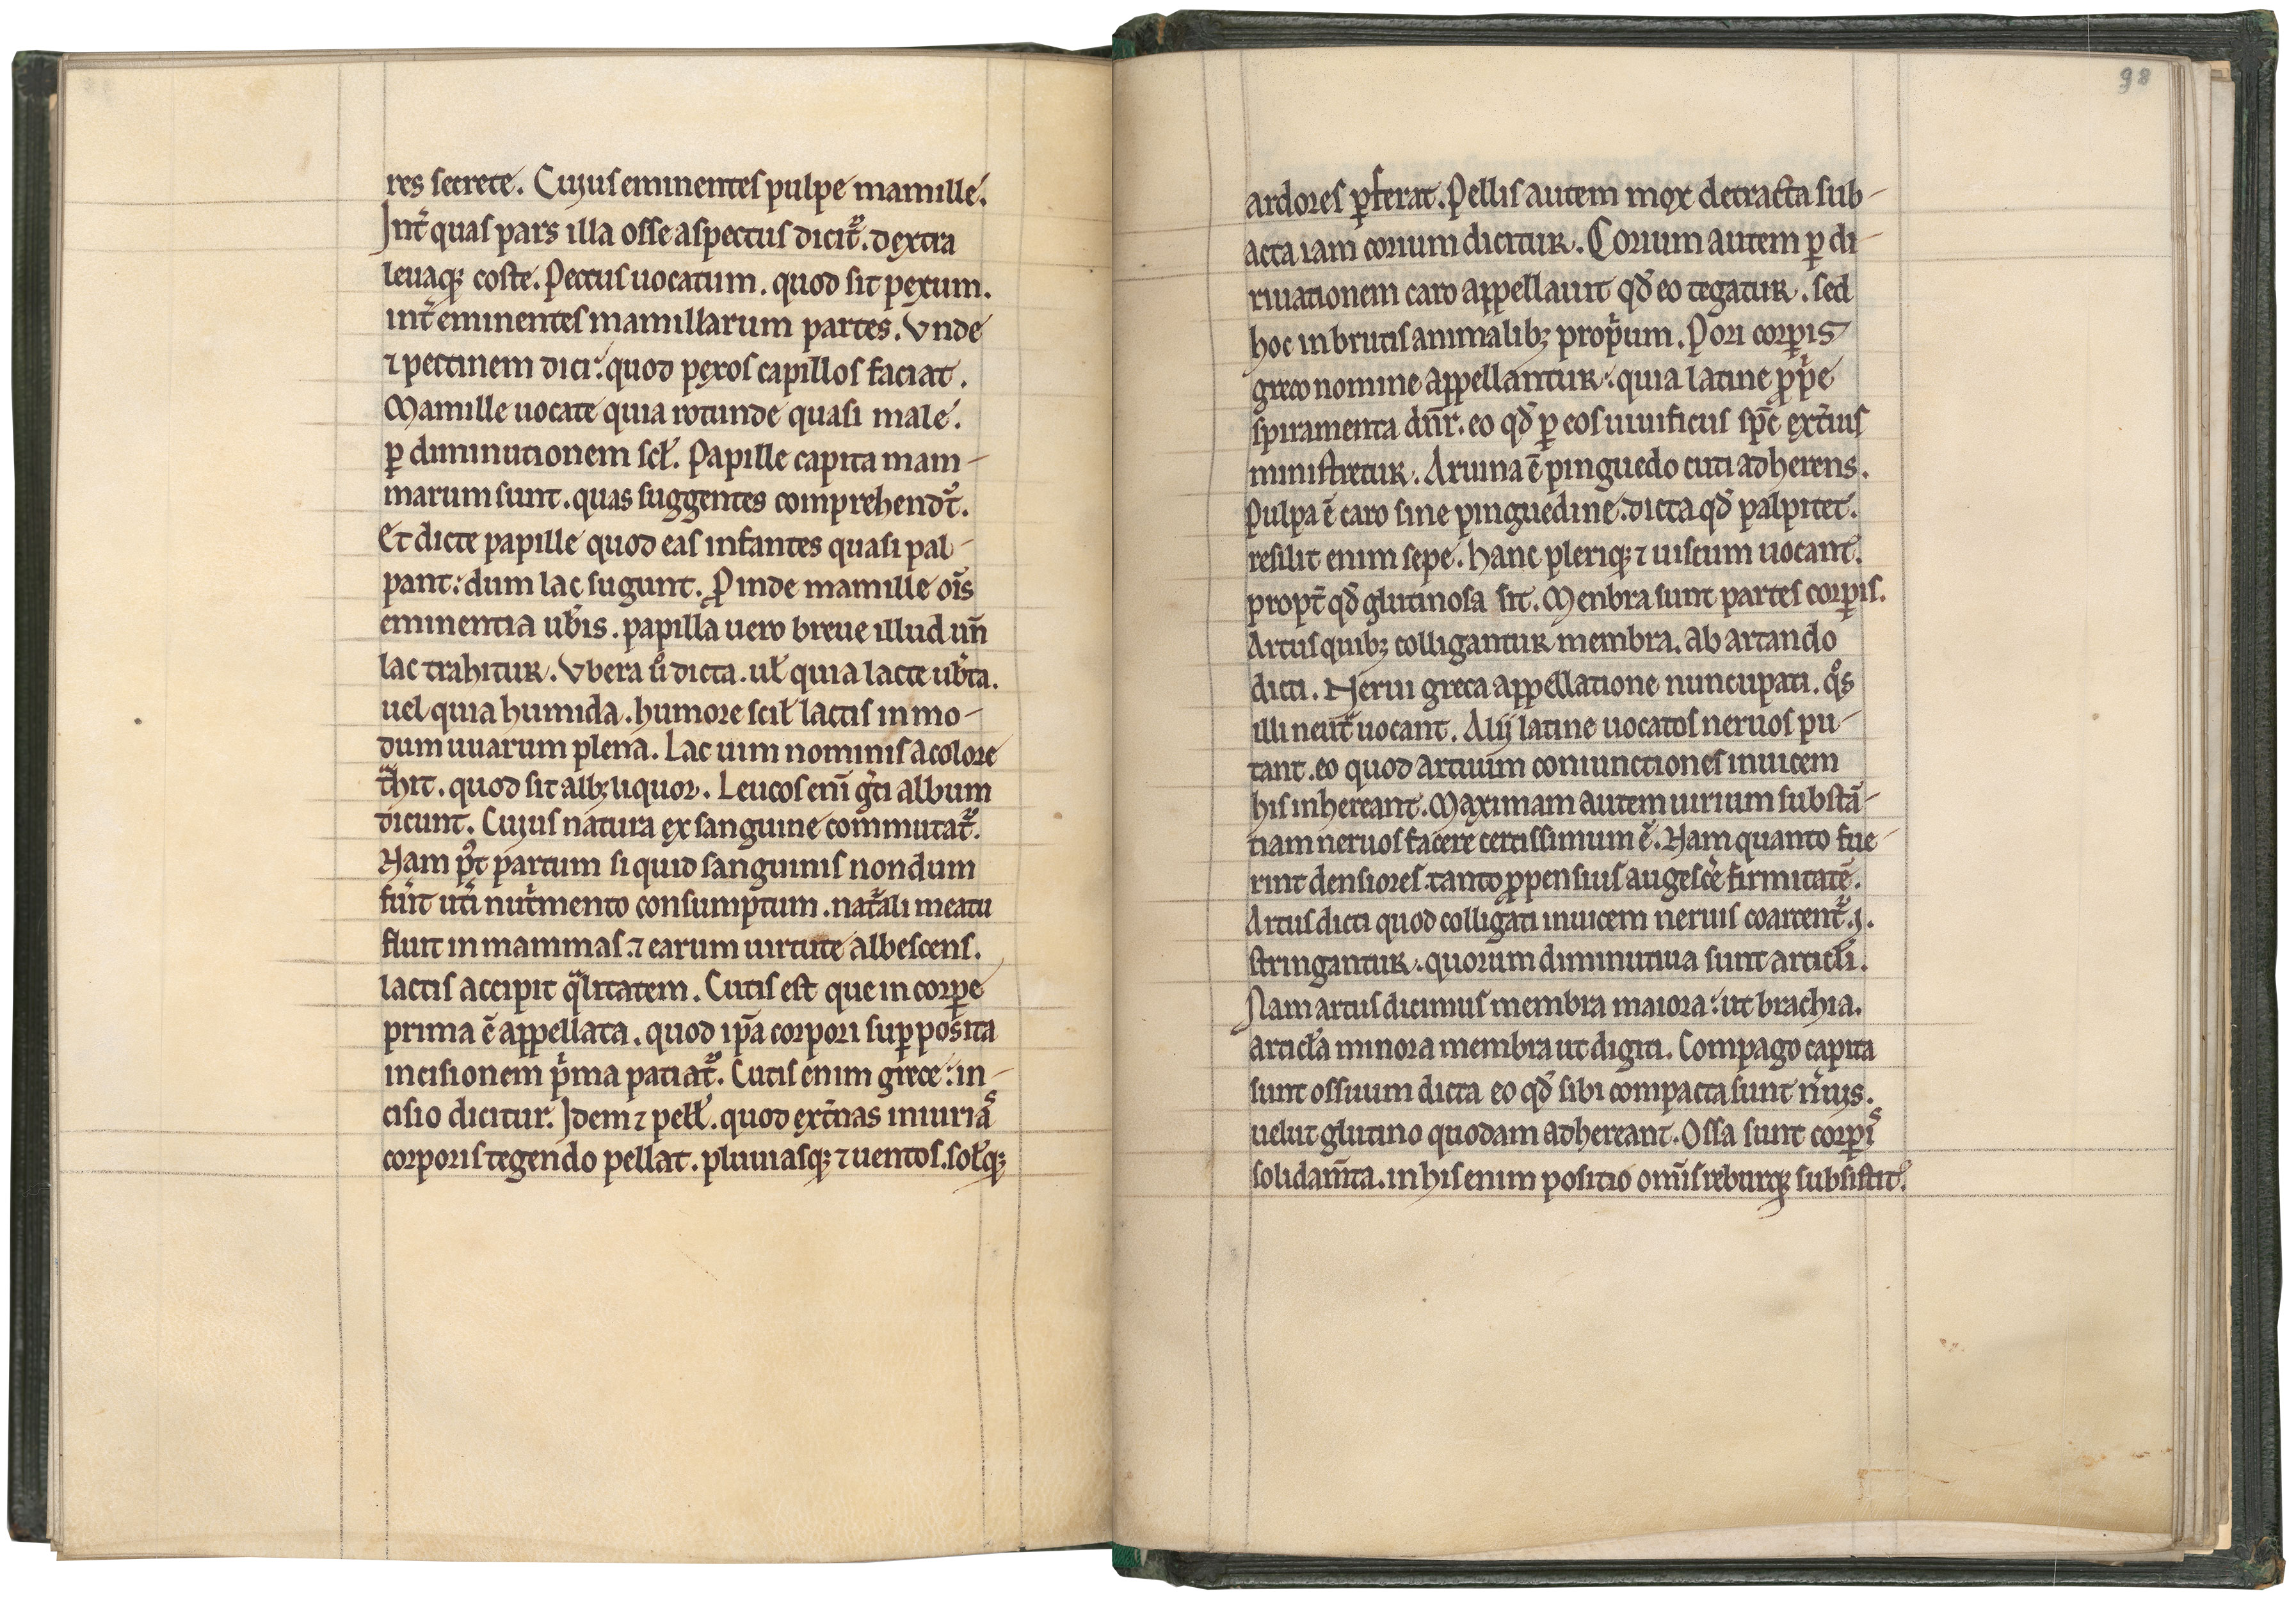 res secrete. Cuius eminentes pulpe mamille.
Int̾ quas pars illa osse aspectus dicit᷑. dextra
leuaqꝫ coste. Pectus uocatum. quod sit pexum.
int̾ eminentes mamillarum partes. Vnde
⁊ pectinem dici: quod pexos capillos faciat.
Mamille uocate quia rotunde quasi male.
ꝑ diminutionem scł. Papille capita mam-
marum sunt. quas suggentes comprehendt᷑.
Et dicte papille quod eas infantes quasi pal-
pant: dum lac sugunt. ꝓinde mamille oı̅s
eminentia ub̾is. papilla uero breue illud un̅
lac trahitur. Vbera u̾ dicta. uł quia lacte ub̾ta.
uel quia humida. humore scił lactis in mo-
dum uuarum plena. Lac uim nominis a colore
tͣhit. quod sit albꝫ liquor. Leucos eni̅ gͥci album
dicunt. Cuius natura ex sanguine commutat᷑.
Nam p᷒t partum si quid sanguinis nondum
fu̾it ut̾i nutͥmento consumptum. natᷣali meatu
fluit in mammas. ⁊ earum uirtute albescens.
lactis accipit qͣlitatem. Cutis est que in corꝑe
prima e̅ appellata. quod ip̅a corpori suꝑposita
incisionem pͥma patiat᷑. Cutis enim grece: in-
cisio dicitur. Idem ⁊ pell̾. quod ext̾nas iniurias
corporis tegendo pellat. pluuiasqꝫ ⁊ uentos. solꝭqꝫ
98
ardores ꝑferat. Pellis autem mox detracta sub-
acta iam corium dicitur. Corium autem ꝑ di-
riuationem caro appellauit qd̾ eo tegatur. sed
hoc in brutis animalibꝫ propͥum. Pori corꝑis
greco nomine appellantur. quia latine ꝓpͥe
spiramenta dn̅r. eo qd̾ ꝑ eos uiuificus sp̅c ext̾ius
ministretur. Aruina e̅ pinguedo cuti adherens.
Pulpa e̅ caro sine pinguedine. dicta qd̾ palpitet.
resilit enim sepe. hanc pleriqꝫ ⁊ uiscum uocant.
propt̾ qd̾ glutinosa sit. Menbra sunt partes corꝑis.
Artus quibꝫ colligantur membra. ab artando
dicti. Nerui greca appellatione nuncupati. qͦs
illi neut᷑ uocant. Alij latine uocatos neruos pu-
tant. eo quod artuum coniunctiones inuicem
his inhereant. Maximam autem uirium substa̅-
tiam neruos facere certissimum e̅. Nam quanto fue-
rint densiores. tanto ꝓpensius augesce̾ firmitate̅.
Artus dicti quod colligati inuicem neruis coartent᷑. .i.
stringantur. quorum diminutiua sunt articl̾i.
Nam artus dicimus membra maiora: ut brachia.
articl̾a minora membra ut digiti. Compago capita
sunt ossuum dicta eo qd̾ sibi compacta sunt n̾uis.
uelut glutino quodam adhereant. Ossa sunt corꝑis
solidam̅ta. in his enim positio om̅is roburqꝫ subsistit.